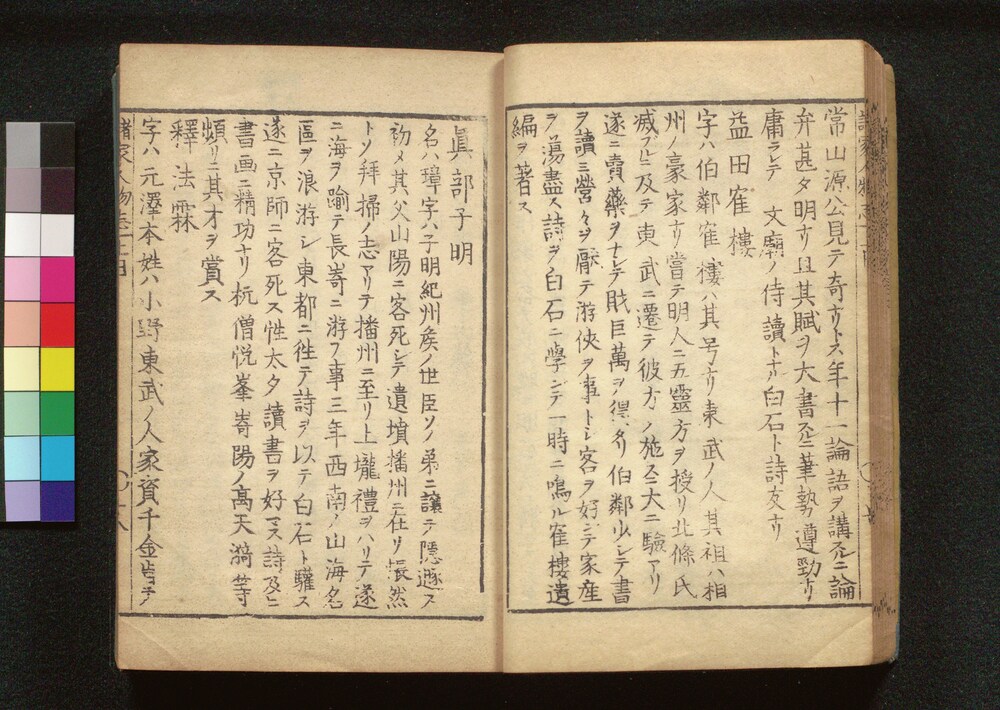 常山源公見テ奇ナリトス年十一論語ヲ講スルニ論
弁甚タ明ナリ且其賦ヲ大書スルニ筆勢遵勁ナリ
庸ラレテ文廟ノ侍讀トナル白石ト詩友ナリ
益田寉樓
字ハ伯鄰寉樓ハ其号ナリ東武ノ人其祖ハ相
州ノ豪家ナリ嘗テ明人ニ五靈方ヲ授リ北條氏
滅フルニ及テ東武ニ遷テ彼方ノ施ス大ニ驗アリ
遂ニ賣藥ヲナシテ財巨萬ヲ得タリ伯鄰少シテ書
ヲ讀ミ營々ヲ厭テ游俠ヲ事トシ客ヲ好ンデ家産
ヲ蕩盡ス詩ヲ白石ニ學ンデ一時ニ鳴ル寉樓遺
編ヲ著ス
眞部子明
名ハ璋字ハ子明紀州矦ノ世臣ソノ弟ニ讓テ隱遯ス
初メ其父山陽ニ客死シテ遺墳播州ニ在リ悵然
トソ拜掃ノ志アリテ播州ニ至リ上壠禮ヲハリテ遂
ニ海ヲ踰テ長嵜ニ游フ事三年西南ノ山海名
區ヲ浪游シ東都ニ徃テ詩ヲ以テ白石ト驩ス
遂ニ京師ニ客死ス性太タ讀書ヲ好ミ又詩及ヒ
書画ニ精功ナリ杭僧悦峯嵜陽ノ高天漪等
頻リニ其才ヲ賞ス
釋法霖
字ハ元澤本姓ハ小野東武ノ人家資千金皆テ
諸家人物志